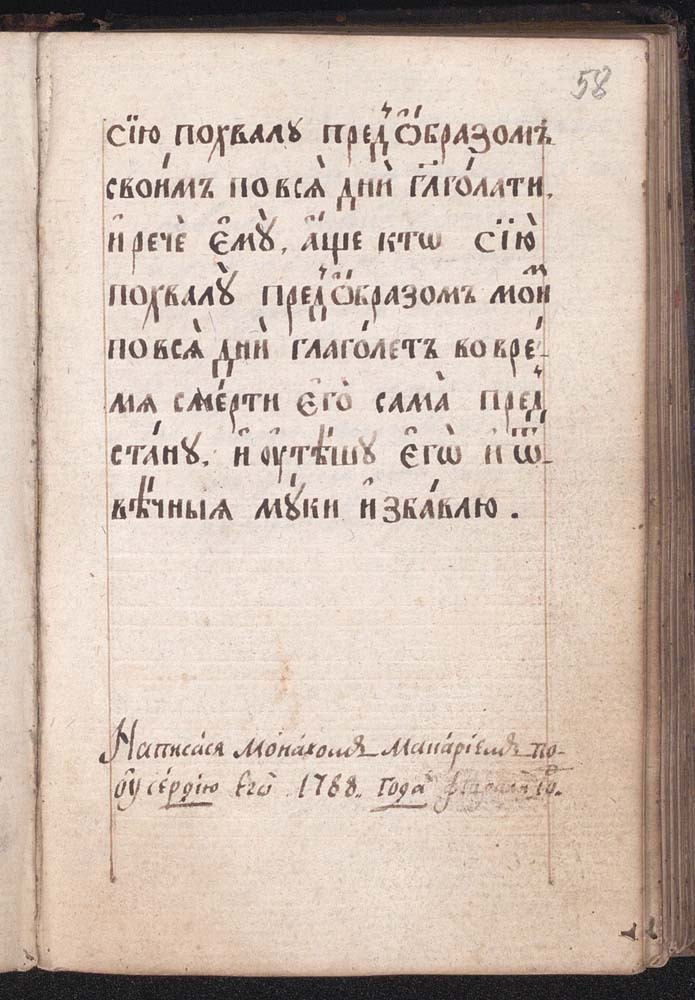 58
сїю похвалу пред̾ ѻ҆́бразомъ
свои́мъ повсѧ̀ дни̑ гл҃аго́лати,
и҆ речѐ є҆мꙋ̀, а҆́ще ктѡ сїю̀
похвалꙋ̀ пред̾ ѻ҆́бразомъ мои҆́м
повсѧ̀ дни̑ глаго́летъ во вре́-
мѧ сме́рти є҆го̀ сама̀ пред̾
ста́нꙋ, и҆ оу҆тѣ́шу є҆гѡ̀ и҆ ѿ
вѣ́чныѧ мꙋ́ки и҆зба́влю .
Написасѧ мона́хомъ макарїемъ по-
оусе́рдїю Егѡ̀ 1788. года̀